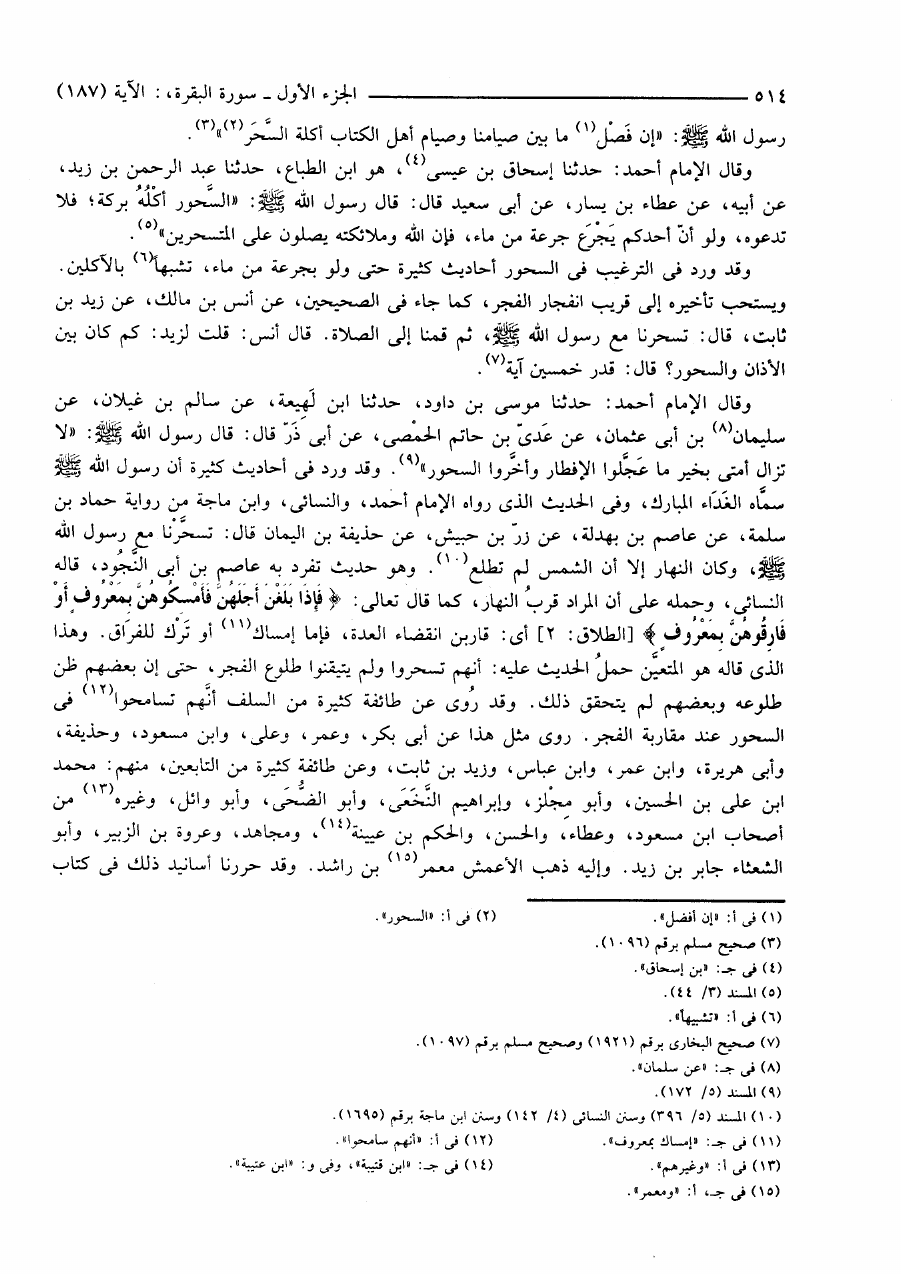 ٥١٤ ــــــــــــــــــــــــــــ الجزء الأول ـ سورة البقرة، : الآية (١٨٧)
رسول الله ﷺ: «إن فَصْل(١) ما بين صيامنا وصيام أهل الكتاب أكلة السَّحَر(٢)»(٣).
وقال الإمام أحمد: حدثنا إسحاق بن عيسى(٤)، هو ابن الطباع، حدثنا عبد الرحمن بن زيد،
عن أبيه، عن عطاء بن يسار، عن أبى سعيد قال: قال رسول الله ﷺ: «السَّحور أكْلُهُ بركة؛ فلا
تدعوه، ولو أنّ أحدكم يَجْرَع جرعة من ماء، فإن الله وملائكته يصلون على المتسحرين»(٥).
وقد ورد فى الترغيب فى السحور أحاديث كثيرة حتى ولو بجرعة من ماء، تشبهاً(٦) بالآكلين.
ويستحب تأخيره إلى قريب انفجار الفجر، كما جاء فى الصحيحين، عن أنس بن مالك، عن زيد بن
ثابت، قال: تسحرنا مع رسول الله ﷺ، ثم قمنا إلى الصلاة. قال أنس: قلت لزيد: كم كان بين
الأذان والسحور؟ قال: قدر خمسين آية(٧).
وقال الإمام أحمد: حدثنا موسى بن داود، حدثنا ابن لَهِيعة، عن سالم بن غيلان، عن
سليمان(٨) بن أبى عثمان، عن عَدىّ بن حاتم الحمْصى، عن أبى ذَرّ قال: قال رسول الله ﷺ: «لا
تزال أمتى بخير ما عَجَّلوا الإفطار وأخَّروا السحور»(٩). وقد ورد فى أحاديث كثيرة أن رسول الله ﷺ
سمَّاه الغَدَاء المبارك، وفى الحديث الذى رواه الإمام أحمد، والنسائى، وابن ماجة من رواية حماد بن
سلمة، عن عاصم بن بهدلة، عن زرّ بن حبيش، عن حذيفة بن اليمان قال: تسحَّرْنا مع رسول الله
ﷺ، وكان النهار إلا أن الشمس لم تطلع(١٠). وهو حديث تفرد به عاصم بن أبى النَّجُود، قاله
النسائى، وحمله على أن المراد قربُ النهار، كما قال تعالى: ﴿ فَإِذَا بَلَغْنَ أَجَلَهُنَّ فَأَمْسِكُوهُنَّ بِمَعْرُوفٍ أَوْ
فَارِقُوهُنَّ بِمَعْرُوفٍ ﴾ [الطلاق: ٢] أى: قاربن انقضاء العدة، فإما إمساك(١١) أو تَرْك للفرَاق. وهذا
الذى قاله هو المتعيَّن حملُ الحديث عليه: أنهم تسحروا ولم يتيقنوا طلوع الفجر، حتى إن بعضهم ظن
طلوعه وبعضهم لم يتحقق ذلك. وقد رُوى عن طائفة كثيرة من السلف أنَّهم تسامحوا(١٢) فى
السحور عند مقاربة الفجر. روى مثل هذا عن أبى بكر، وعمر، وعلى، وابن مسعود، وحذيفة،
وأبى هريرة، وابن عمر، وابن عباس، وزيد بن ثابت، وعن طائفة كثيرة من التابعين، منهم: محمد
ابن على بن الحسين، وأبو مِجْلز، وإبراهيم النَّخَعَى، وأبو الضُّحَى، وأبو وائل، وغيره(١٣) من
أصحاب ابن مسعود، وعطاء، والحسن، والحكم بن عيينة(١٤)، ومجاهد، وعروة بن الزبير، وأبو
الشعثاء جابر بن زيد. وإليه ذهب الأعمش معمر(١٥) بن راشد. وقد حررنا أسانيد ذلك فى كتاب
(١) فى أ: «إن أفضل». (٢) فى أ: «السحور».
(٣) صحيح مسلم برقم (١٠٩٦).
(٤) فى جـ: «بن إسحاق».
(٥) المسند (٣/ ٤٤).
(٦) فى أ: «تشبيهاً».
(٧) صحيح البخارى برقم (١٩٢١) وصحيح مسلم برقم (١٠٩٧).
(٨) فى جـ: «عن سلمان».
(٩) المسند (٥/ ١٧٢).
(١٠) المسند (٥/ ٣٩٦) وسنن النسائى (٤/ ١٤٢) وسنن ابن ماجة برقم (١٦٩٥).
(١١) فى جـ: «إمساك بمعروف». (١٢) فى أ: «أنهم سامحوا».
(١٣) فى أ: «وغيرهم». (١٤) فى جـ: «ابن قتيبة»، وفى و: «ابن عتيبة».
(١٥) فى جـ، أ: «ومعمر».